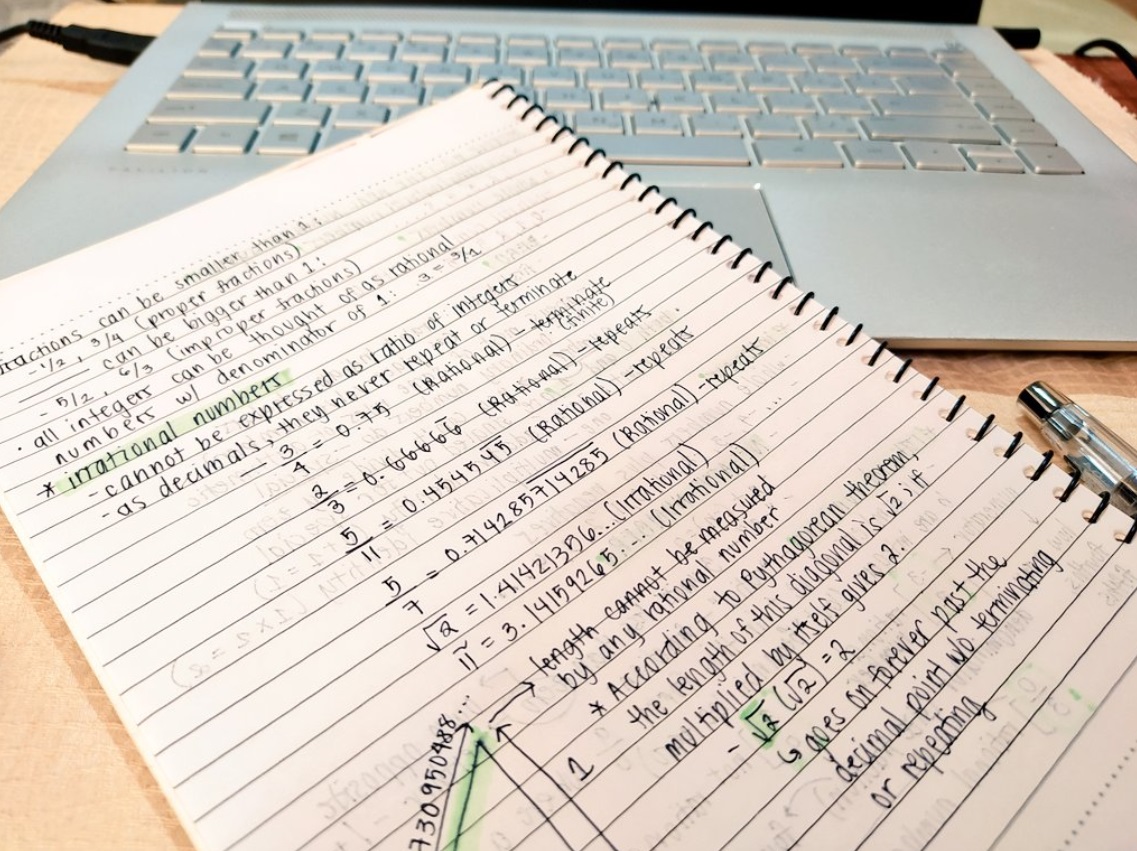 fractions can be smaller than 1:
- 1/2, 3/4 (proper fractions)
can be bigger than 1:
- 5/2, 6/3 (improper fractions)
• all integers can be thought of as rational
numbers w/ denominator of 1: 3 = 3/1
* irrational numbers
- cannot be expressed as ratio of integers
- as decimals, they never repeat or terminate
— 3/4 = 0.75 (Rational) - terminate
(finite)
2/3 = 0.66666 (Rational) - repeats
5/11 = 0.454545 (Rational) - repeats
5/7 = 0.714285714285 (Rational) - repeats
√2 = 1.41421356... (Irrational)
π = 3.14159265... (Irrational)
→ length cannot be measured
by any rational number
* According to Pythagorean theorem,
the length of this diagonal is √2; if
multiplied by itself gives 2.
- √2 (√2) = 2
↳ goes on forever past the
decimal point w/o terminating
or repeating
730950488...
1